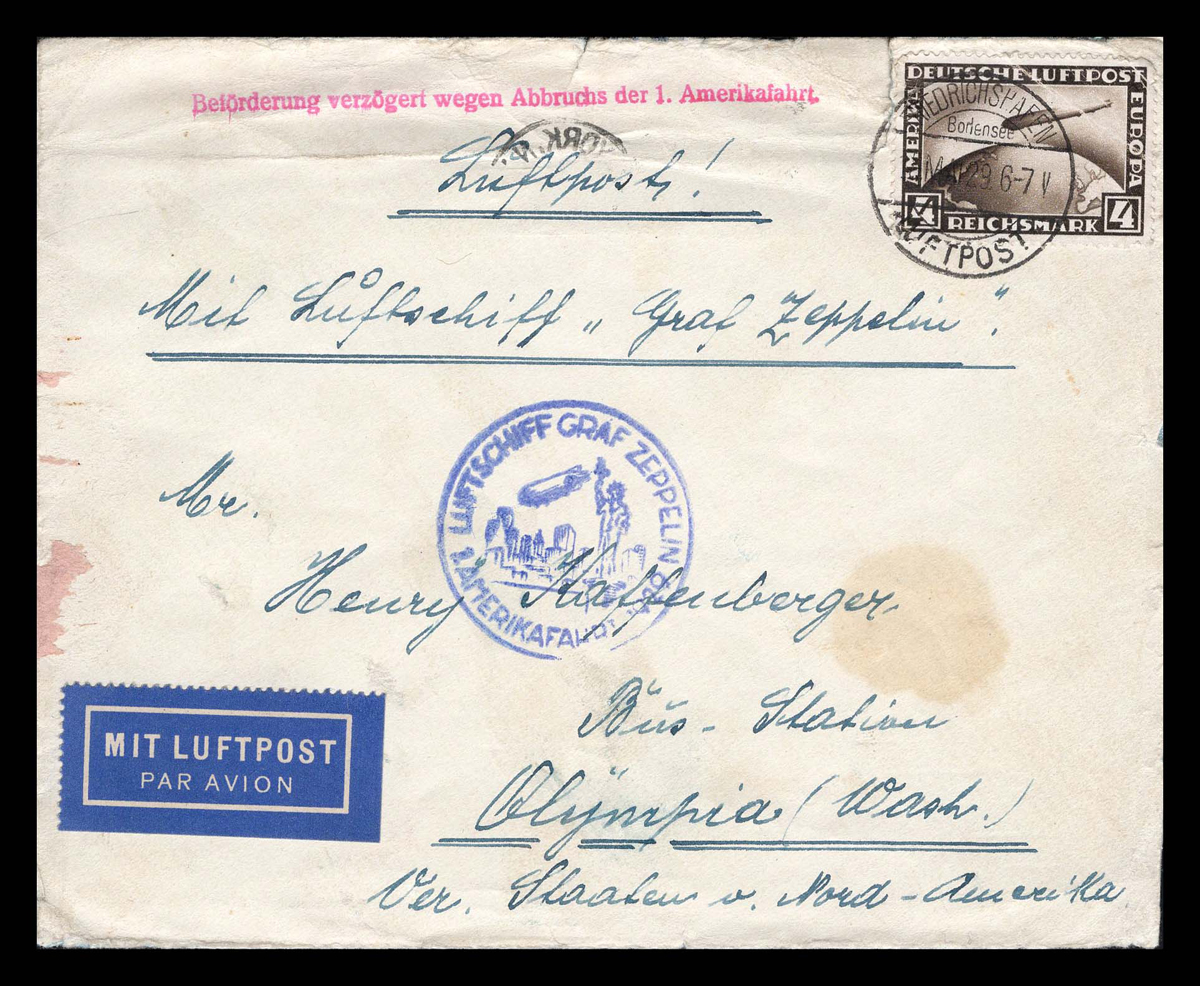 Beförderung verzögert wegen Abbruchs der 1. Amerikafahrt.
DEUTSCHE LUFTPOST
AMERIKA
EUROPA
4 REICHSMARK 4
FRIEDRICHSHAFEN
Bodensee
MAI 29 6-7 V
LUFTPOST
YORK, N.
Luftpost!
Mit Luftschiff „Graf Zeppelin".
LUFTSCHIFF GRAF ZEPPELIN
1. AMERIKAFAHRT 1929
Mr.
Henry Kattenberger
Bus-Station
Olÿmpia (Wash.)
Ver. Staaten v. Nord-Amerika.
MIT LUFTPOST
PAR AVION